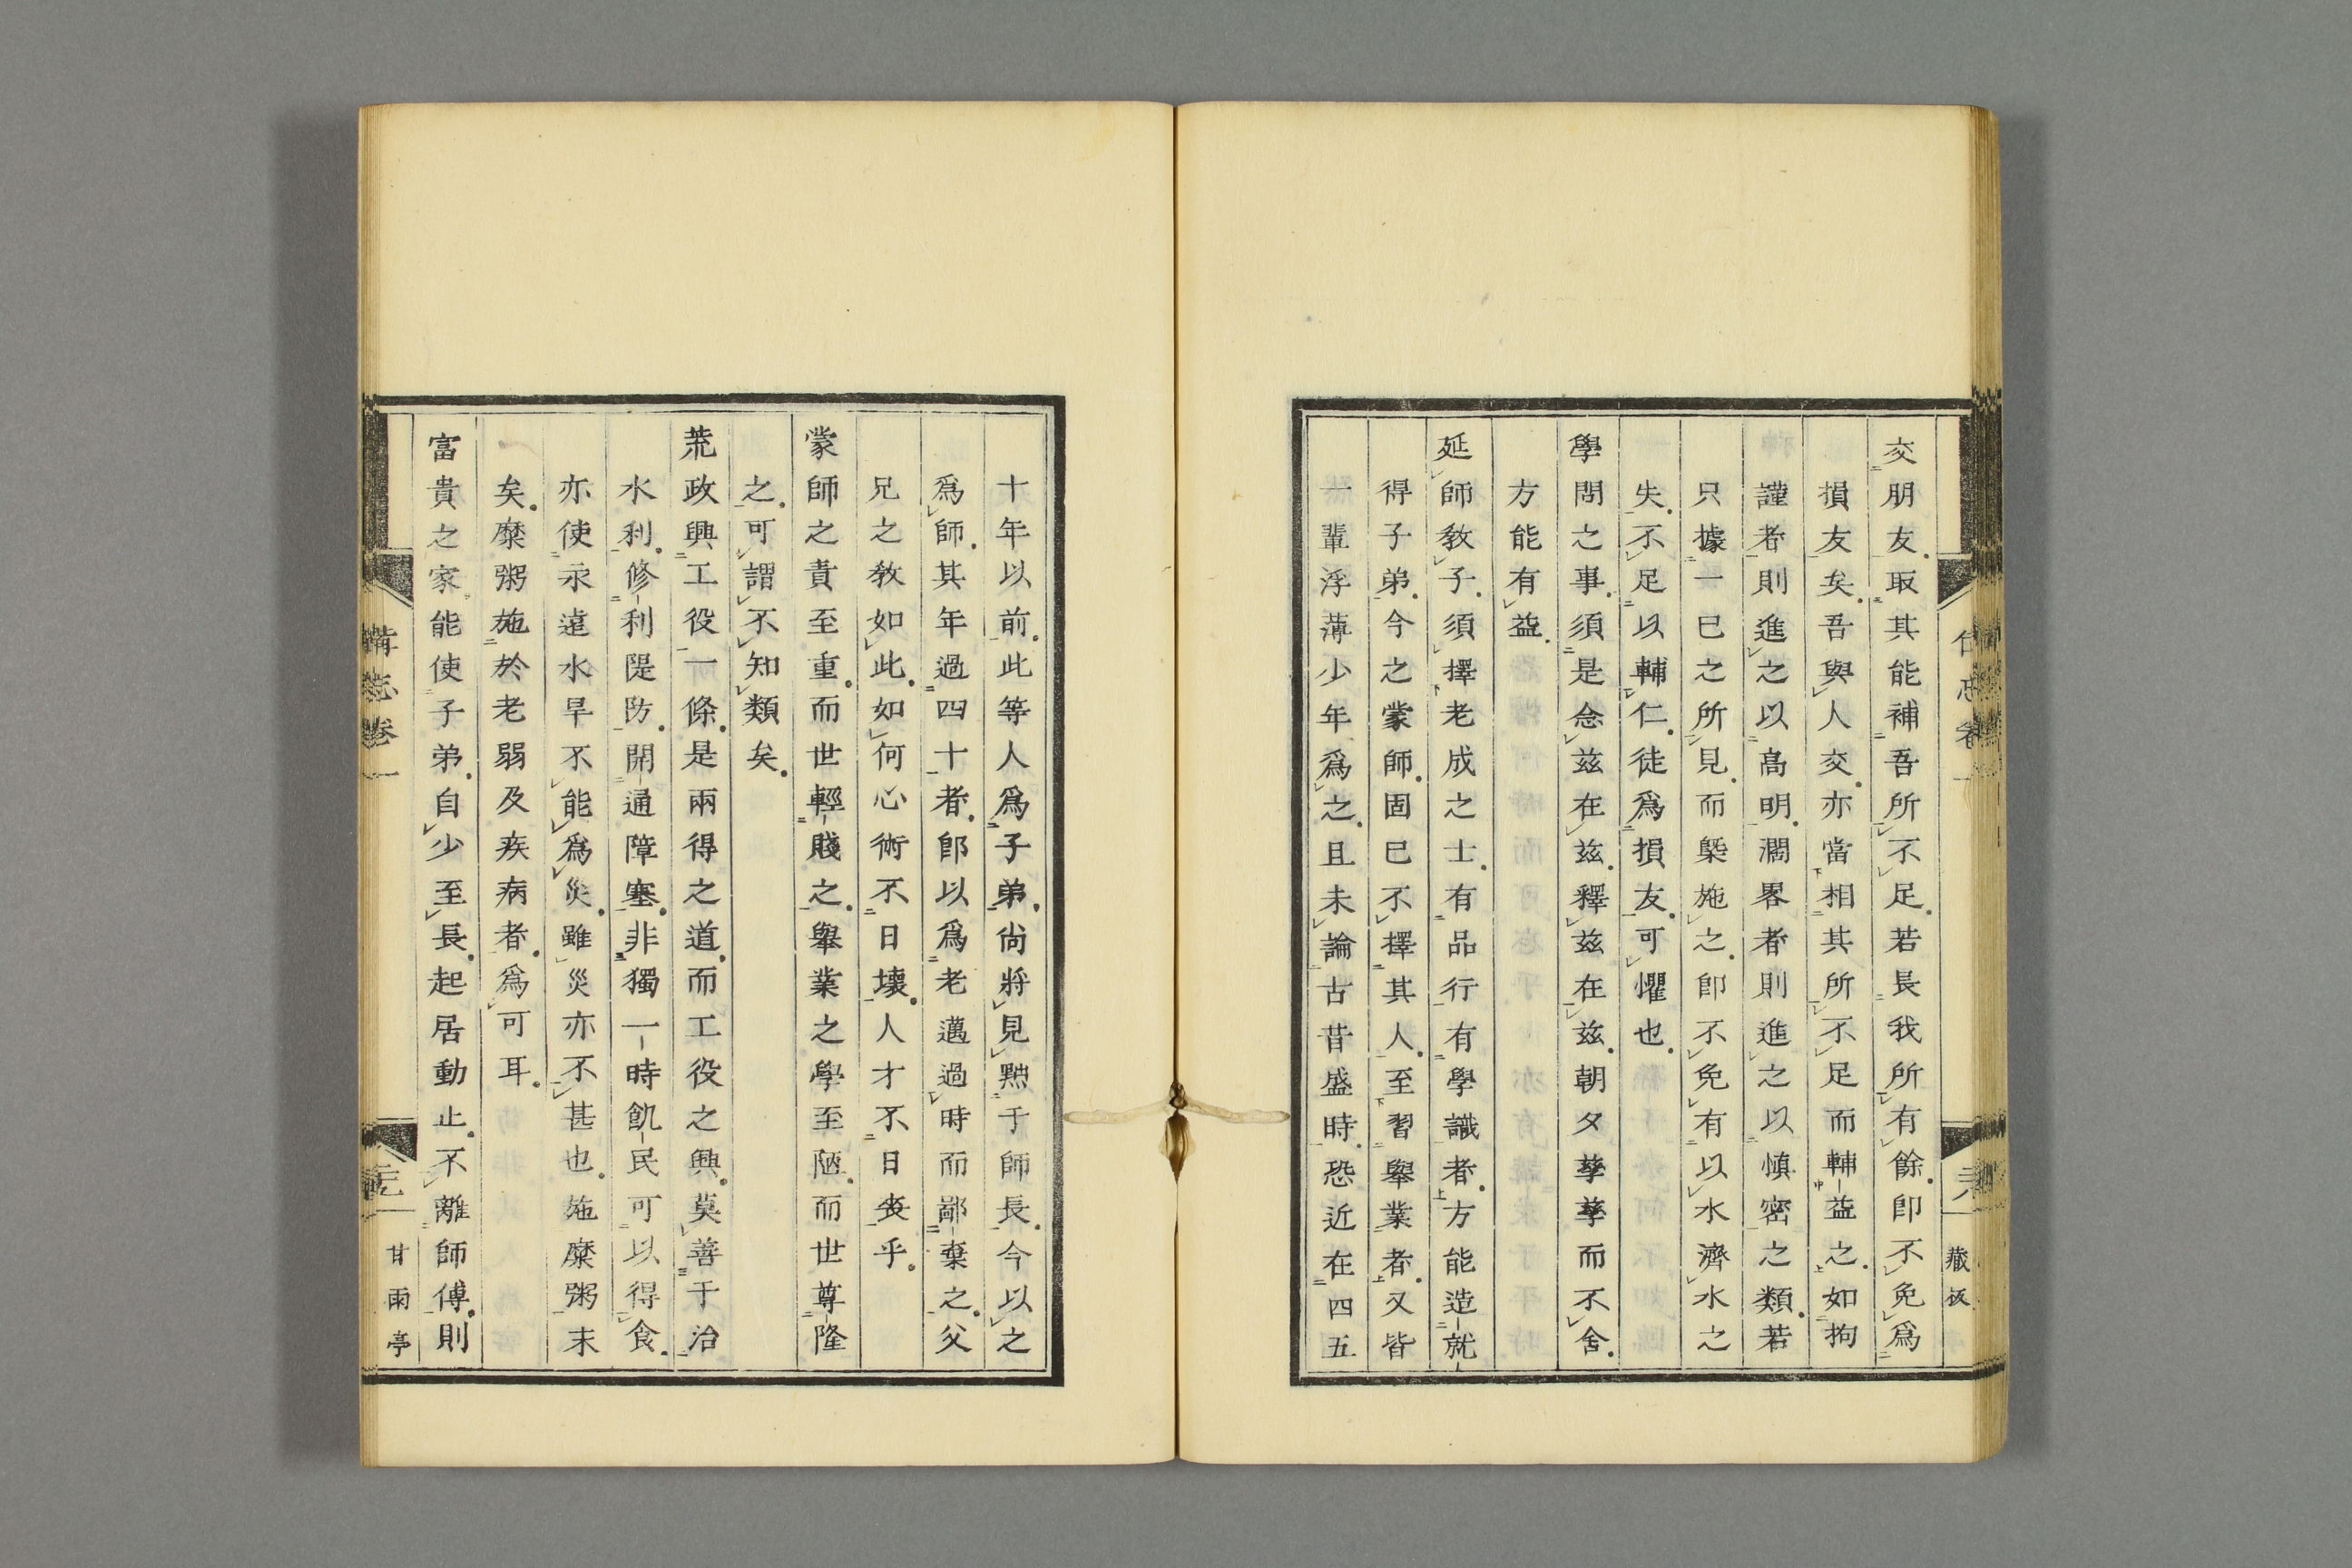 交朋友取其能補吾所不足若長我所有餘卽不免爲
損友矣吾與人交亦當相其所不足而輔益之如拘
謹者則進之以高明濶畧者則進之以愼密之類若
只據一已之所見而槩施之卽不免有以水濟水之
失不足以輔仁徒爲損友可懼也
學問之事須是念兹在兹釋兹在兹朝夕孳孳而不舍
方能有益
延師敎子須擇老成之士有品行有學識者方能造就
得子弟今之蒙師固已不擇其人至習舉業者又皆
一輩浮薄少年爲之且未論古昔盛時恐近在四五
藏板
十年以前此等人爲子弟尙將見黜于師長今以之
爲師其年過四十者卽以爲老邁過時而鄙棄之父
兄之敎如此如何心術不日壞人才不日喪乎
蒙師之責至重而世輕賤之舉業之學至陋而世尊隆
之可謂不知類矣
荒政興工役一條是兩得之道而工役之興莫善于治
水利修利隄防開通障塞非獨一時飢民可以得食
亦使永遠水旱不能爲災雖災亦不甚也施糜粥末
矣糜粥施於老弱及疾病者爲可耳
富貴之家能使子弟自少至長起居動止不離師傅則
備忘卷一
甘雨亭